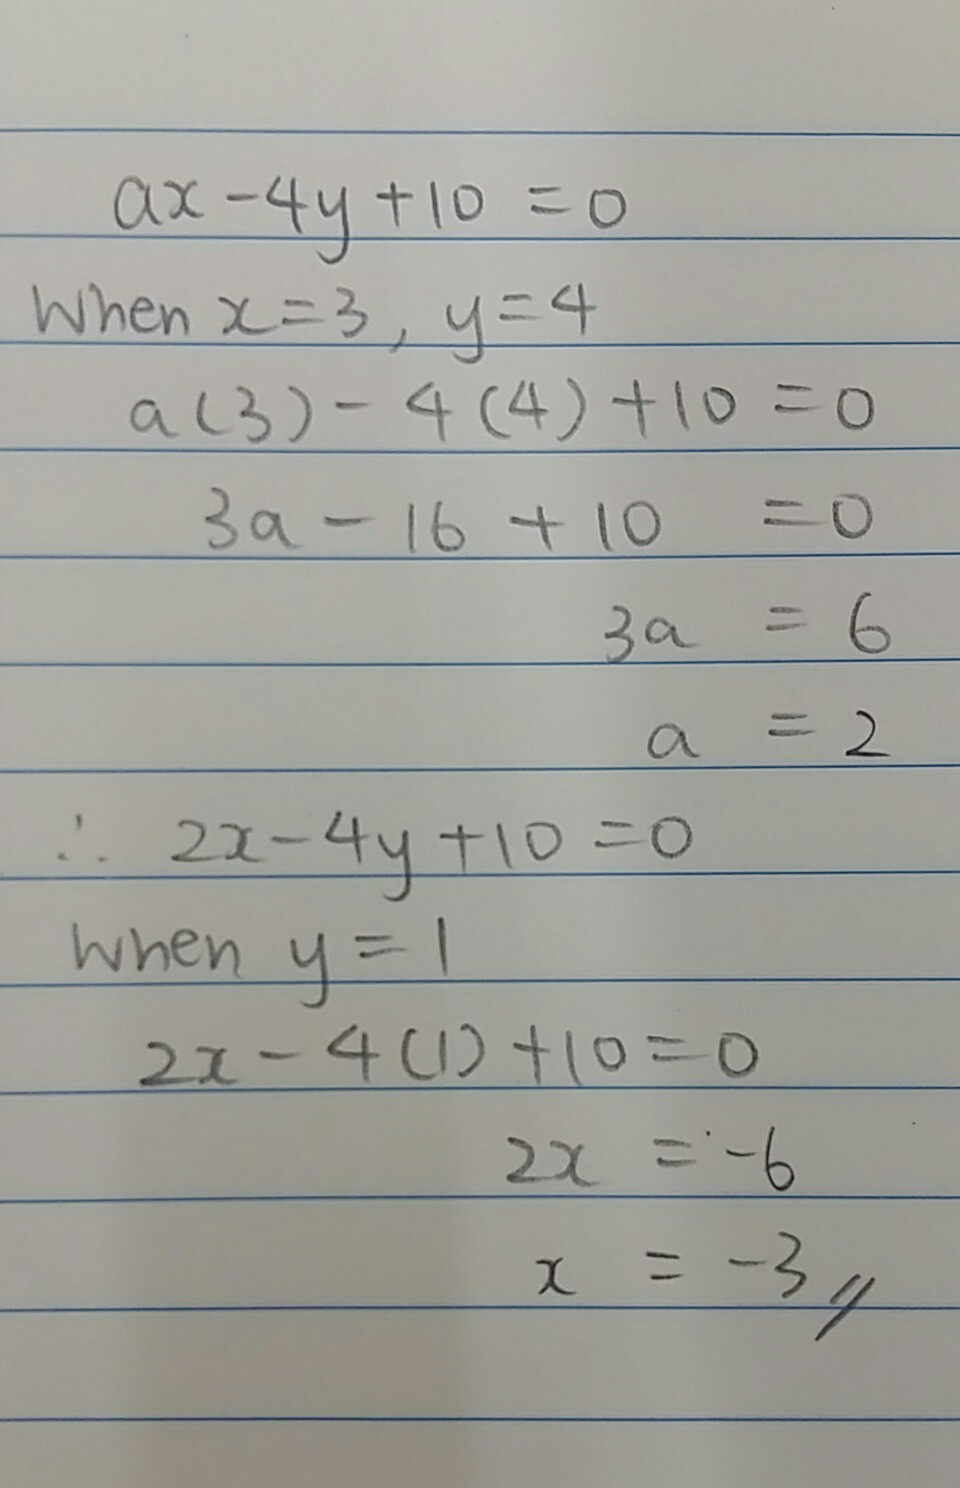 ax - 4y + 10 = 0
When x = 3, y = 4
a(3) - 4(4) + 10 = 0
3a - 16 + 10 = 0
3a = 6
a = 2
∴ 2x - 4y + 10 = 0
When y = 1
2x - 4(1) + 10 = 0
2x = -6
x = -3 //